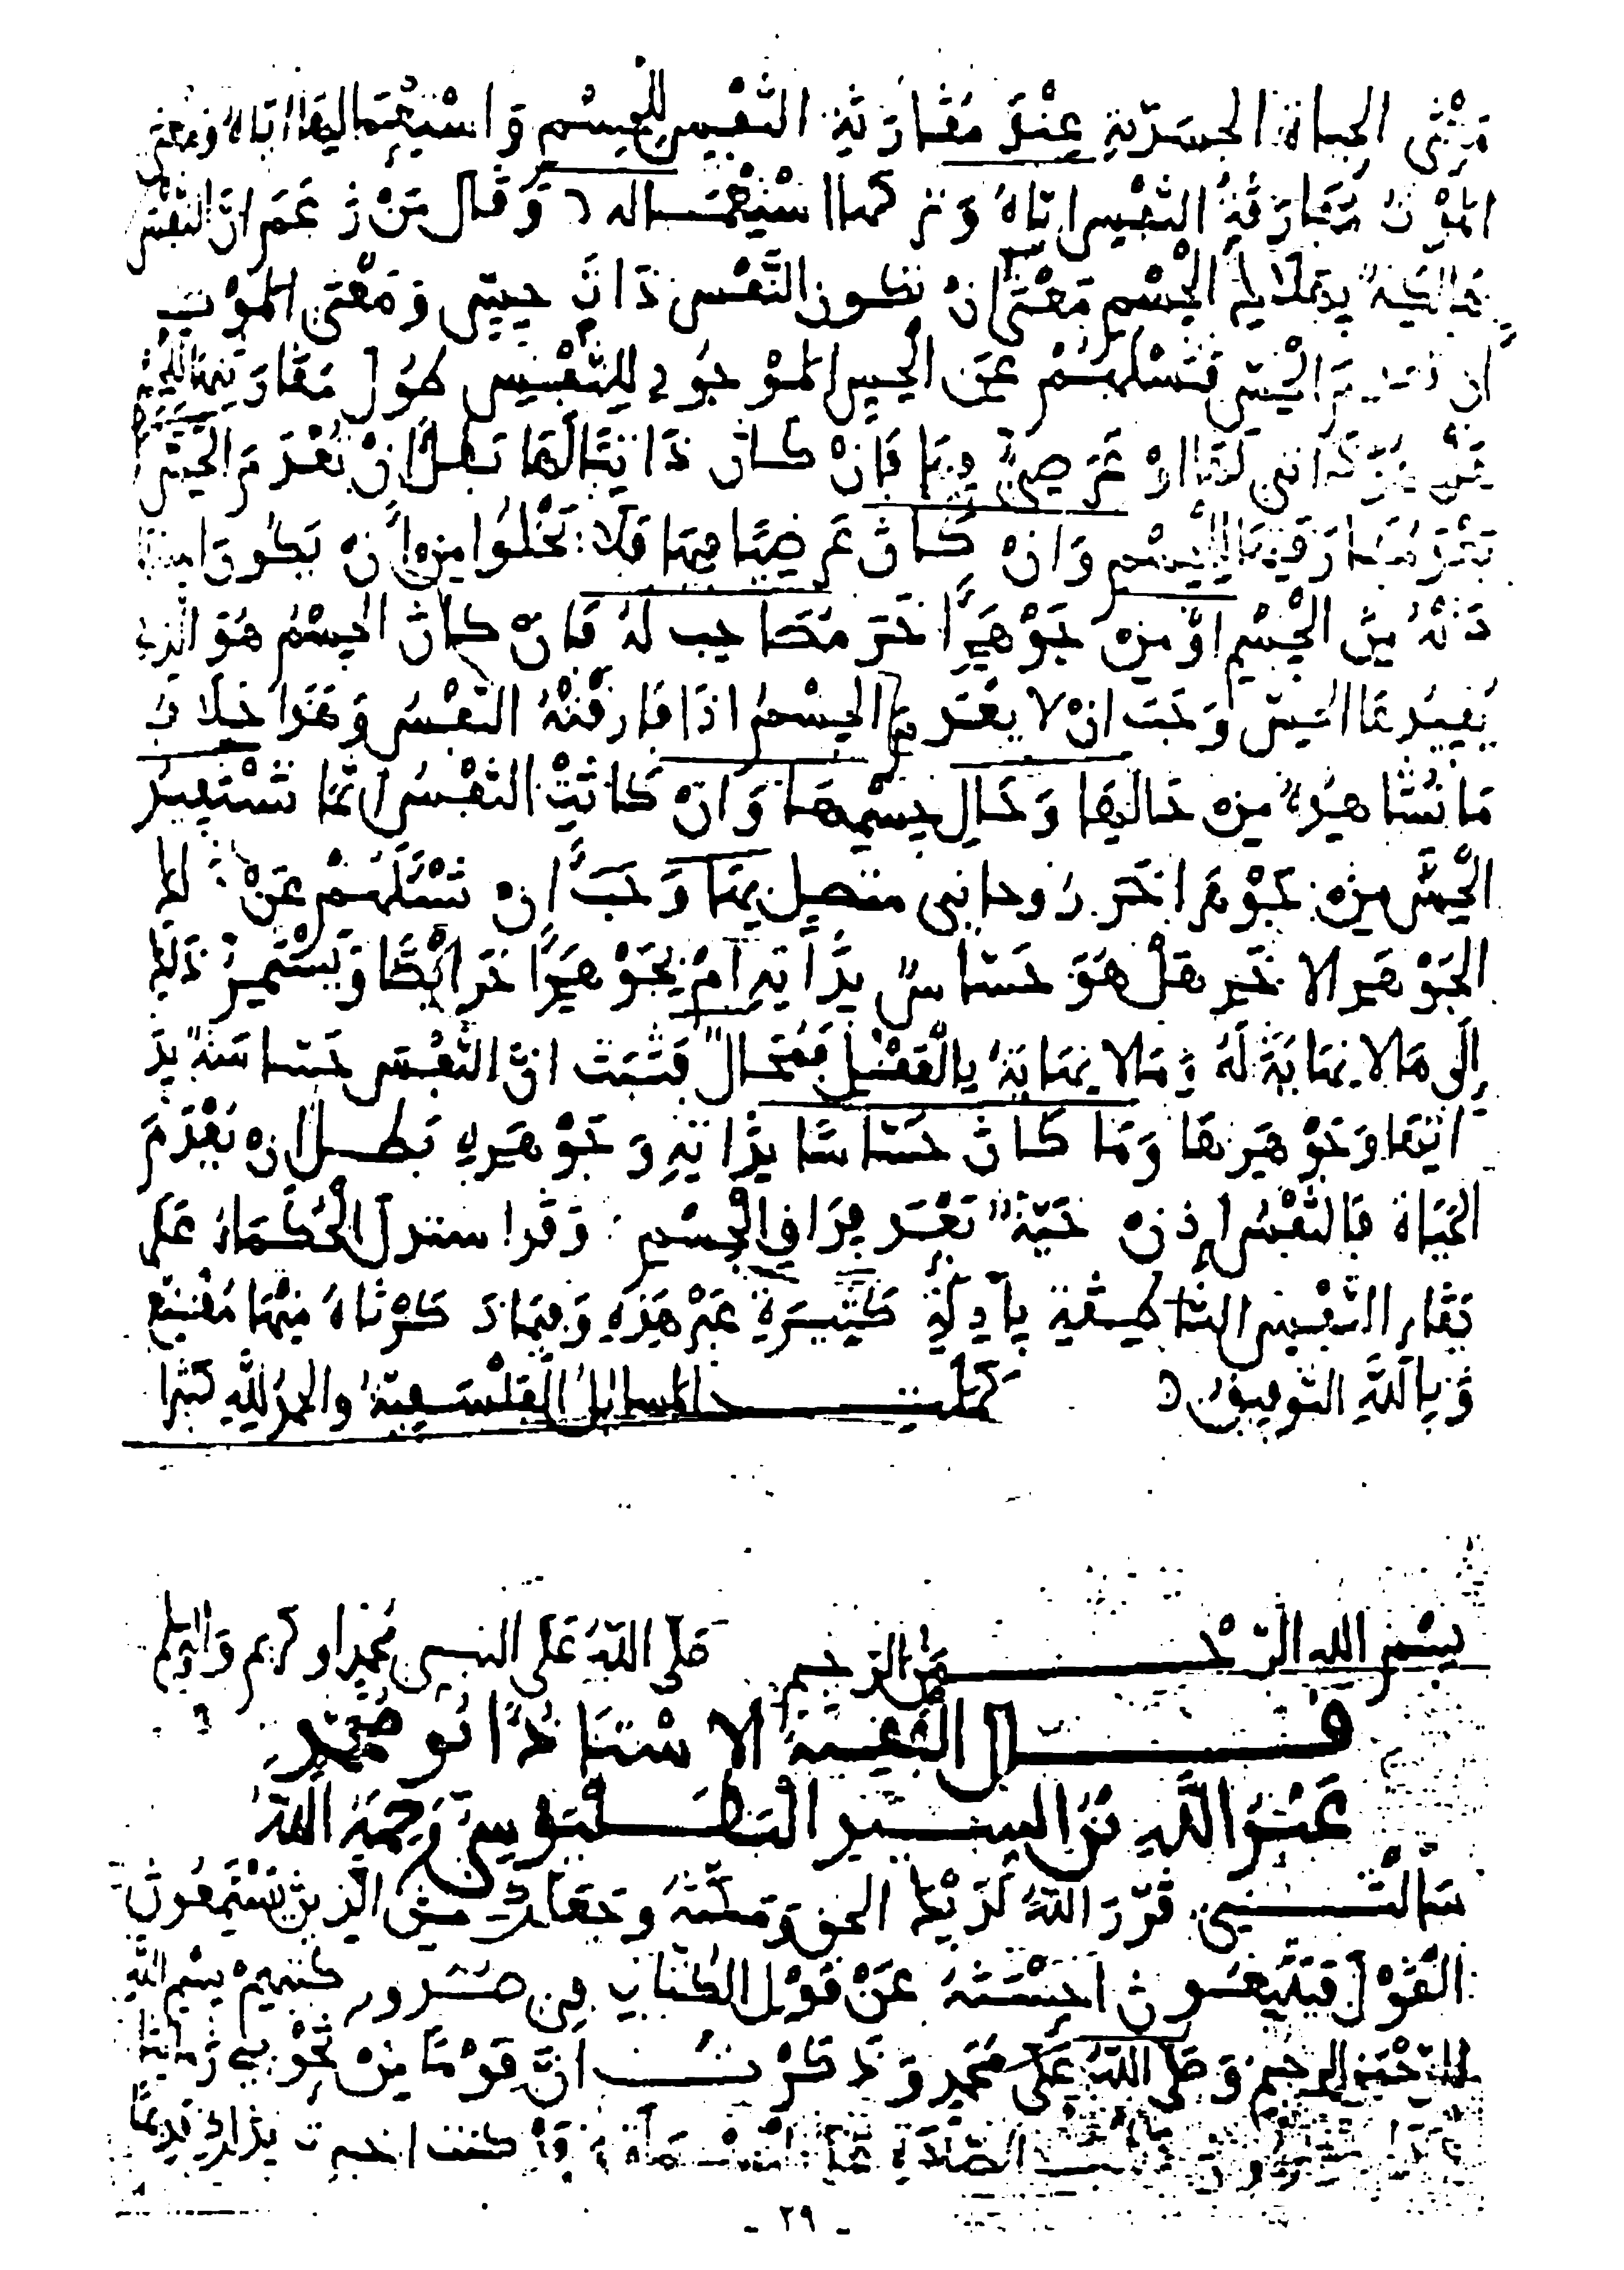 معنى الحياة الجسدية عند مقارنة النفس للجسم واستعمالها اياه ومعنى
الموت مفارقة النفس اياه وتركها استعماله وقال من زعم ان النفس
هالكة بهلاك الجسم معنى ان تكون النفس ذات حس ومعنى الموت
ان تعدم الحس فنسلهم عن الحس الموجود للنفس طول مقارنتها للجسم
هل هو ذاتي لها او عرضي فيها فان كان ذاتيا لها بطل ان تعدم الحس
بعد مفارقتها للجسم وان كان عرضيا فيها فلا تخلوا من ان يكون
من الجسم او من جوهر اخر مصاحب له فان كان الجسم هو الذي
يفيدها الحس وجب ان لا يعدم الجسم اذا فارقته النفس وهذا خلاف
ما نشاهده من حالها وحال جسمها وان كانت النفس انما تستفيد
الحس من جوهر اخر روحاني متصل بها وجب ان نسئلهم عن ذلك
الجوهر الاخر هل هو حساس بذاته ام بجوهر اخر ايضا ويستمر ذلك
إلى ما لا نهاية له وما لا نهاية بالفعل فمحال فثبت ان النفس حساسة بذ
اتها وجوهرها وما كان حساسا بذاته وجوهره بطل ان يعدم
الحياة فالنفس إذن حية بعد فراق الجسم وقد استدل الحكماء على
بقاء النفس الناطقة بأدلة كثيرة غير هذه وفيما ذكرناه منها مقنع
وبالله التوفيق كملت المسائل الفلسفية والحمد لله كثيرا
بسم الله الرحمن الرحيم صلى الله على النبي محمد الكريم واله وسلم
قال الفقيه الاستاذ ابو محمد
عبد الله بن السيد البطليوسي رحمه الله
سألتني قرر الله لديك الحق ومكنه وجعلك من الذين يستمعون
القول فيتبعون احسنه عن قول الكتاب في صدور كتبهم بسم الله
الرحمن الرحيم وصلى الله على محمد وذكرت ان قوما من نحويي زماننا
الصلاة على وكنت اخبرت بذلك قديما
- ٢٩ -